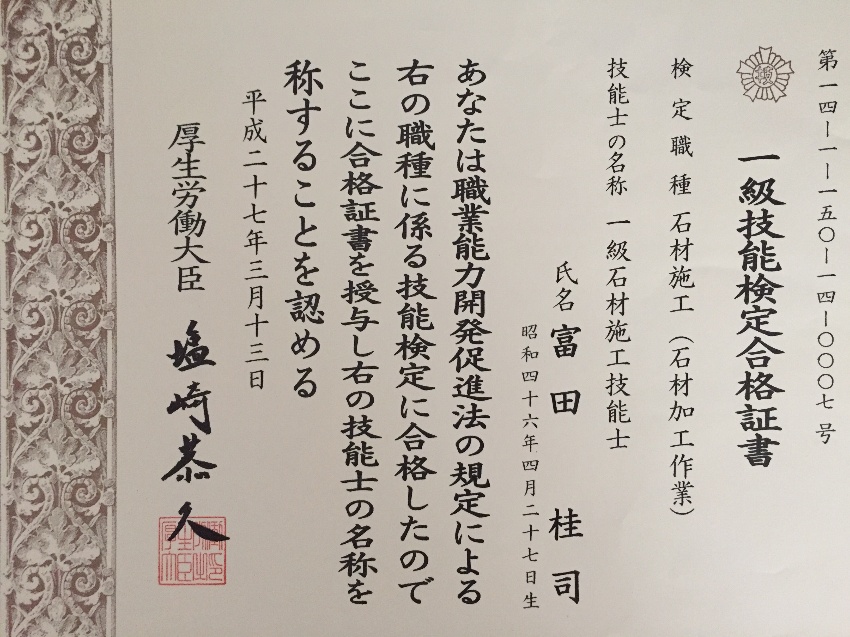 第一四ー一ー一五〇ー一四ー〇〇〇七号
技
一級技能検定合格証書
検定職種 石材施工(石材加工作業)
技能士の名称 一級石材施工技能士
氏名 富田 桂司
昭和四十六年四月二十七日生
あなたは職業能力開発促進法の規定による
右の職種に係る技能検定に合格したので
ここに合格証書を授与し右の技能士の名称を
称することを認める
平成二十七年三月十三日
厚生労働大臣 塩崎恭久